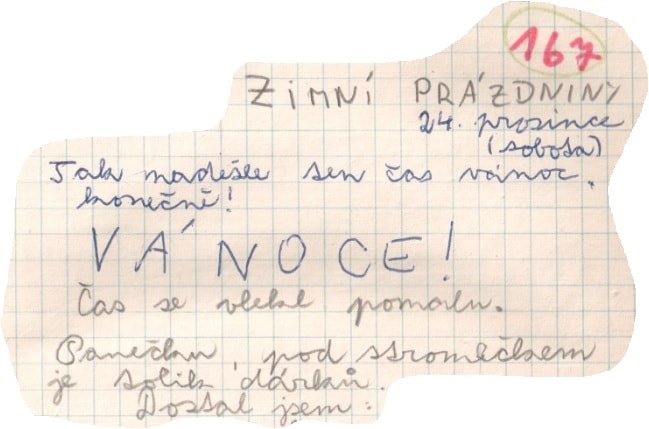 167
ZIMNÍ PRÁZDNINY
24. prosince
(sobota)
Tak nadešle sen čas vánoc.
konečně!
VÁNOCE!
Čas se vlekl pomalu.
Panečku, pod stromečkem
je tolik dárků.
Dostal jsem: